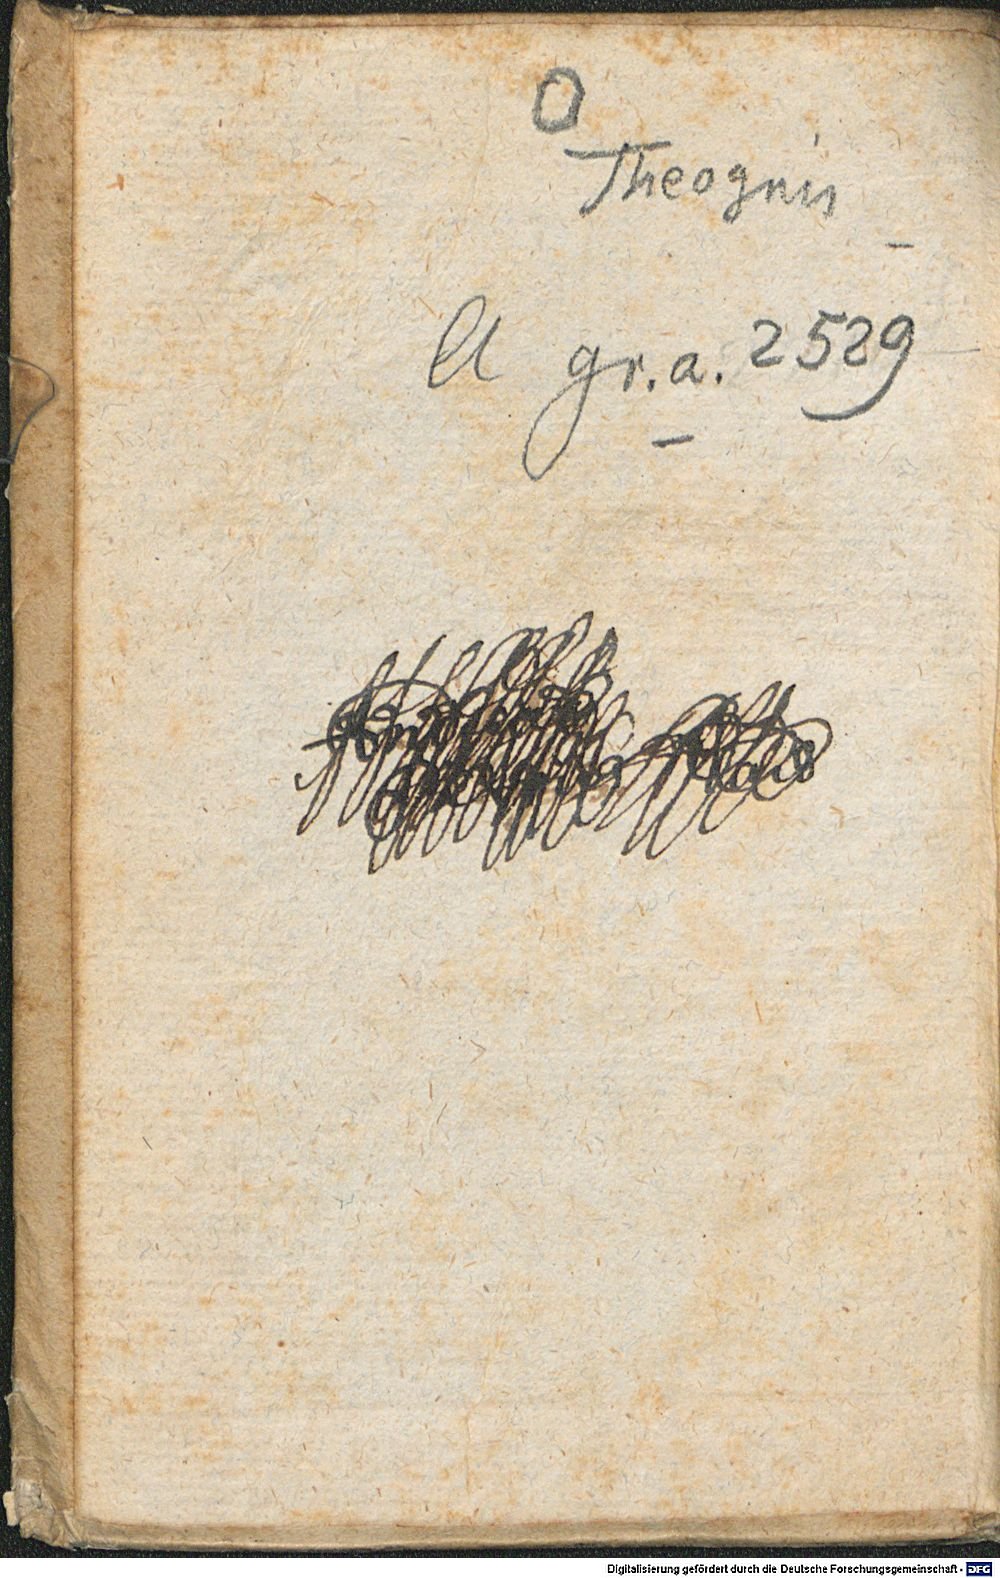 O
Theognis
A gr. a. 2529
Digitalisierung gefördert durch die Deutsche Forschungsgemeinschaft - DFG